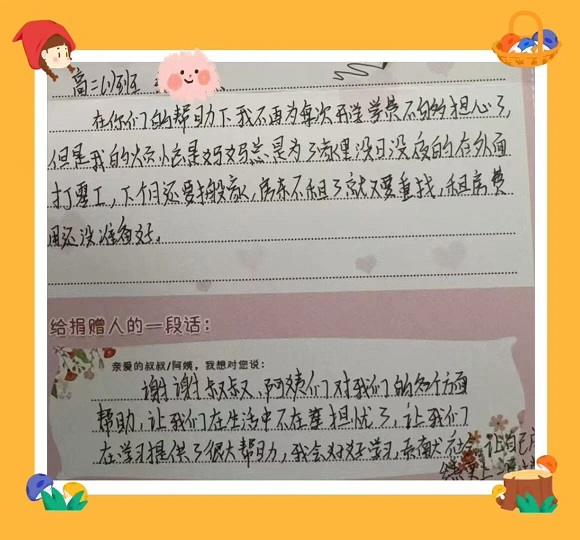 高二(6)班
在你们的帮助下我不再为每次开学学费不够担心了，
但是我的烦恼是妈妈总是为了家里没日没夜的在外面
打零工，下个月还要搬家，房东不租了就又要重找，租房费
用还没准备好。
给捐赠人的一段话：
亲爱的叔叔/阿姨，我想对您说：
谢谢叔叔、阿姨们对我们的各个方面
帮助，让我们在生活中不在荤担忧了，让我们
在学习提供了很大帮助，我会好好学习，贡献社会，让自己